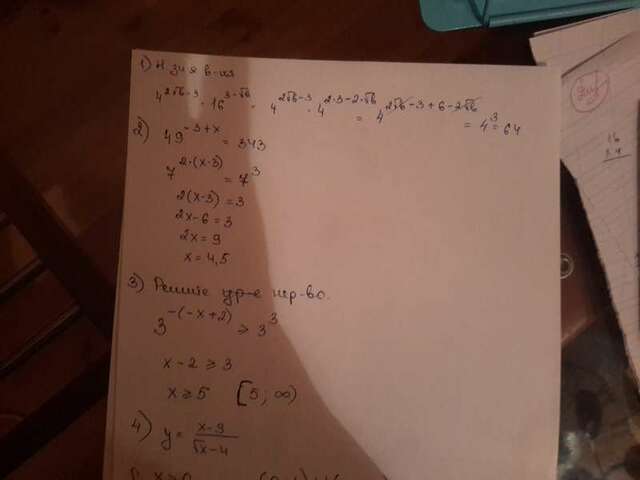 1) Н. з-ия в-ия
4^{2√6-3} · 16^{3-√6} = 4^{2√6-3} · 4^{2·3-2·√6} = 4^{2√6-3+6-2√6} = 4^3 = 64
2) 49^{-3+x} = 343
7^{2·(x-3)} = 7^3
2(x-3) = 3
2x-6 = 3
2x = 9
x = 4,5
3) Решите ур-е нер-во.
3^{-(-x+2)} ≥ 3^3
x-2 ≥ 3
x ≥ 5 [5; ∞)
4) y = \frac{x-3}{√x-4}